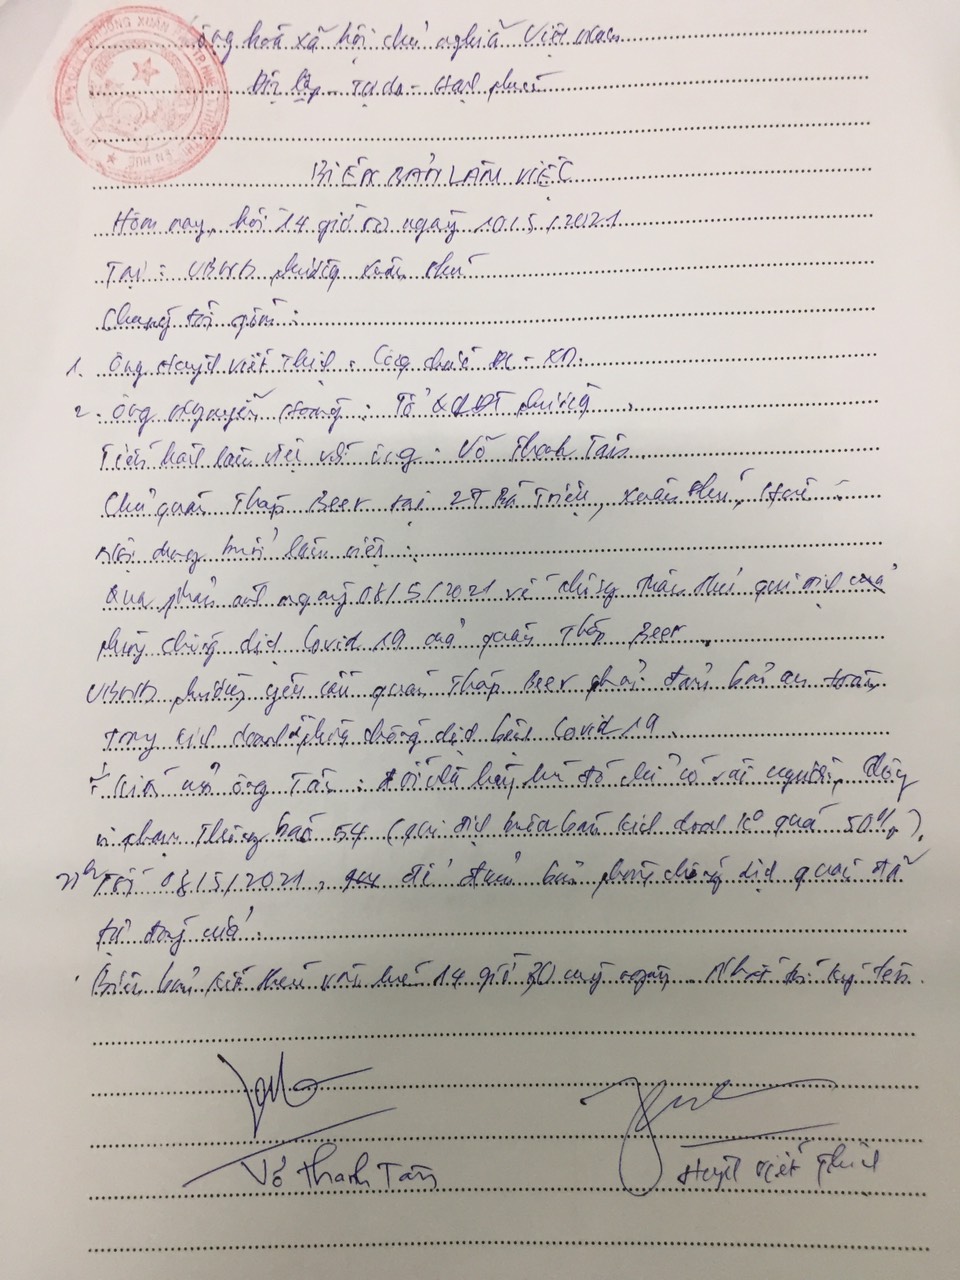 Cộng hoà xã hội chủ nghĩa Việt Nam
Độc lập - Tự do - Hạnh phúc
BIÊN BẢN LÀM VIỆC
Hôm nay, hồi 14 giờ 00 ngày 10/5/2021
Tại: UBND phường Xuân Phú
Chúng tôi gồm:
1. Ông Huỳnh Viết Thịnh: Công chức ĐC-XD.
2. Ông Nguyễn Hoàng: Tổ QLĐT phường
Tiến hành làm việc với ông: Võ Thanh Tân
Chủ quán Tháp Beer tại 27 Bà Triệu, Xuân Phú, Huế
Nội dung buổi làm việc:
Qua phản ánh ngày 08/5/2021 về thông qui định của
phòng chống dịch Covid 19 của quán Tháp Beer
UBND phường yêu cầu quán Tháp Beer phải đảm bảo an toàn
trong kinh doanh & phòng chống dịch bệnh Covid 19
Ý kiến của ông Tân: thời hủ đó chỉ có vài người, không
vi phạm Thông báo 54 (qui định kinh doanh ko quá 50%).
Tối 08/5/2021, để đảm bảo phòng chống dịch quán đã
tự đóng cửa.
Biên bản kết thúc vào lúc 14 giờ 30 cùng ngày. Nhất trí ký tên.
Võ Thanh Tân
Huỳnh Viết Thịnh